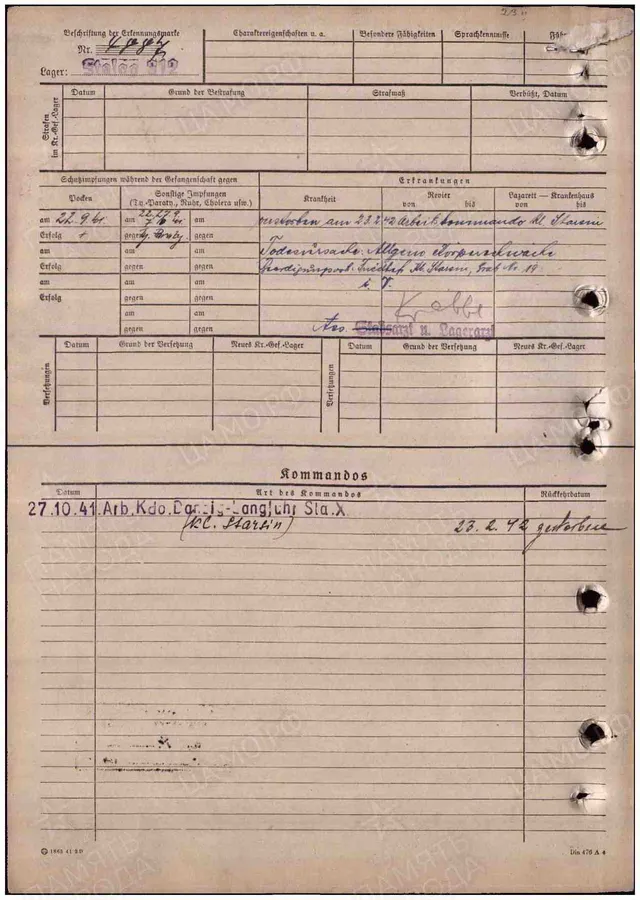 Beschriftung der Erkennungsmarke
Nr.
Lager: Stalag 312
Charaktereigenschaften u. a.
Besondere Fähigkeiten
Sprachkenntnisse
Strafen im Kr.-Gef.-Lager
Datum Grund der Bestrafung Strafmaß Verbüßt, Datum
Schutzimpfungen während der Gefangenschaft gegen
Erkrankungen
Pocken
Sonstige Impfungen
(Ty.-Paraty., Ruhr, Cholera usw.)
Krankheit
Revier
von bis
Lazarett — Krankenhaus
von bis
am 22.9.41. am am verstorben am 23.2.42 Arbeitskommando Kl. Starsin
Erfolg + gegen gegen
am am am Todesursache: Allgem. Körperschwäche
Erfolg gegen gegen Friedhof Kl. Starsin, Grab Nr. 19
am am am i. V.
Erfolg gegen gegen
am am
gegen gegen Stabsarzt u. Lagerarzt
Versetzungen
Datum Grund der Versetzung Neues Kr.-Gef.-Lager
Versetzungen
Datum Grund der Versetzung Neues Kr.-Gef.-Lager
Kommandos
Datum Art des Kommandos Rückkehrdatum
27.10.41. Arb.Kdo.Danzig-Langfuhr Sta.X.
(Kl. Starsin) 23.2.42 gestorben
Din 476 A 4
ЦАМО.РФ
ПАМЯТЬ НАРОДА